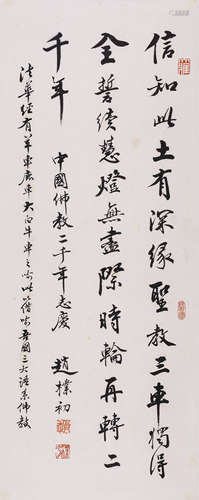 信知此土有深緣聖教三車獨得
全誓續慧燈無盡際時輪再轉二
千年
中國佛教二千年志慶
趙樸初
法華經有羊車鹿車大白牛車之喻此借喻吾國三大語系佛教